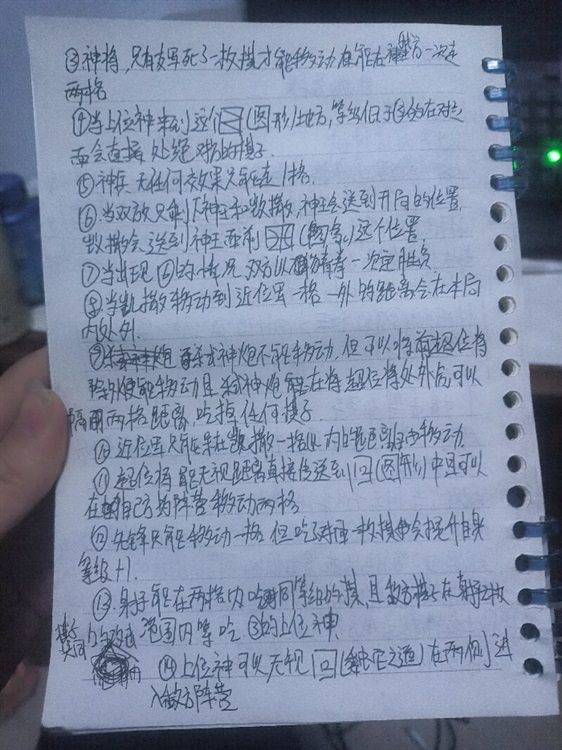 ③神将，只有友军死了一枚棋才能移动
两格
④当上位神来到这个(图形)地方，
而会直接处绝对方的棋子
⑤神兵无任何效果只能走1格.
⑥当双放只剩下神王和凯撒，神王会送到开局的位置，
凯撒会送到神王面前(图象)这个位置
⑦当出现⑥的情况双方以一次定胜负
⑧当凯撒移动到近位置一格一外的距离会在本局
内处刑.
神炮不能移动，但可以将超位将
移动且神炮能在将超位将处外后，可以
隔两格距离吃掉任何棋子
⑩近位置只能呆在凯撒一格以内的距离移动.
⑪超位将能无视距离直接传送到回(图形)中且可以
在自己方阵营移动两格
⑫先锋只能移动一格，但吃了对面一枚棋会提升自身
等级+1.
⑬射手能在两格内吃同等级的棋，且敌方棋子在射手2枚
棋子共同以上的攻击范围内等吃③的上位神
⑭上位神可以无视回(之道)在两侧进
入敌方阵营